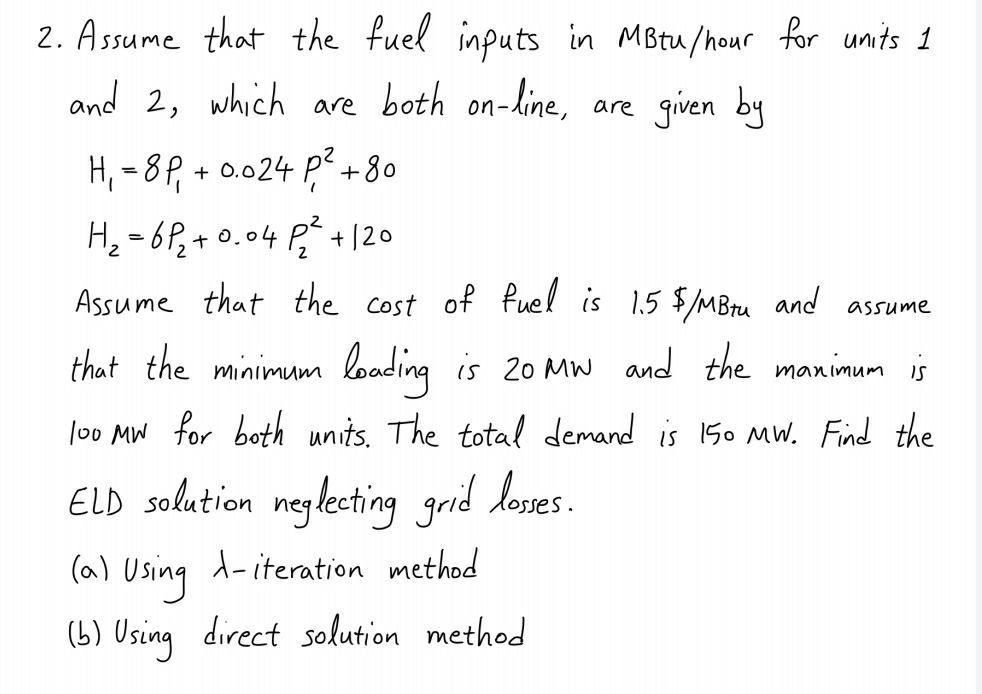 2. Assume that the fuel inputs in MBtu/hour for units 1
and 2, which are both on-line, are given by
H₁ = 8P₁ + 0.024 P₁² + 80
H₂ = 6P₂ + 0.04 P₂² + 120
Assume that the cost of fuel is 1.5 $/MBtu and assume
that the minimum loading is 20 MW and the maximum is
100 MW for both units. The total demand is 150 MW. Find the
ELD solution neglecting grid losses.
(a) Using λ-iteration method
(b) Using direct solution method